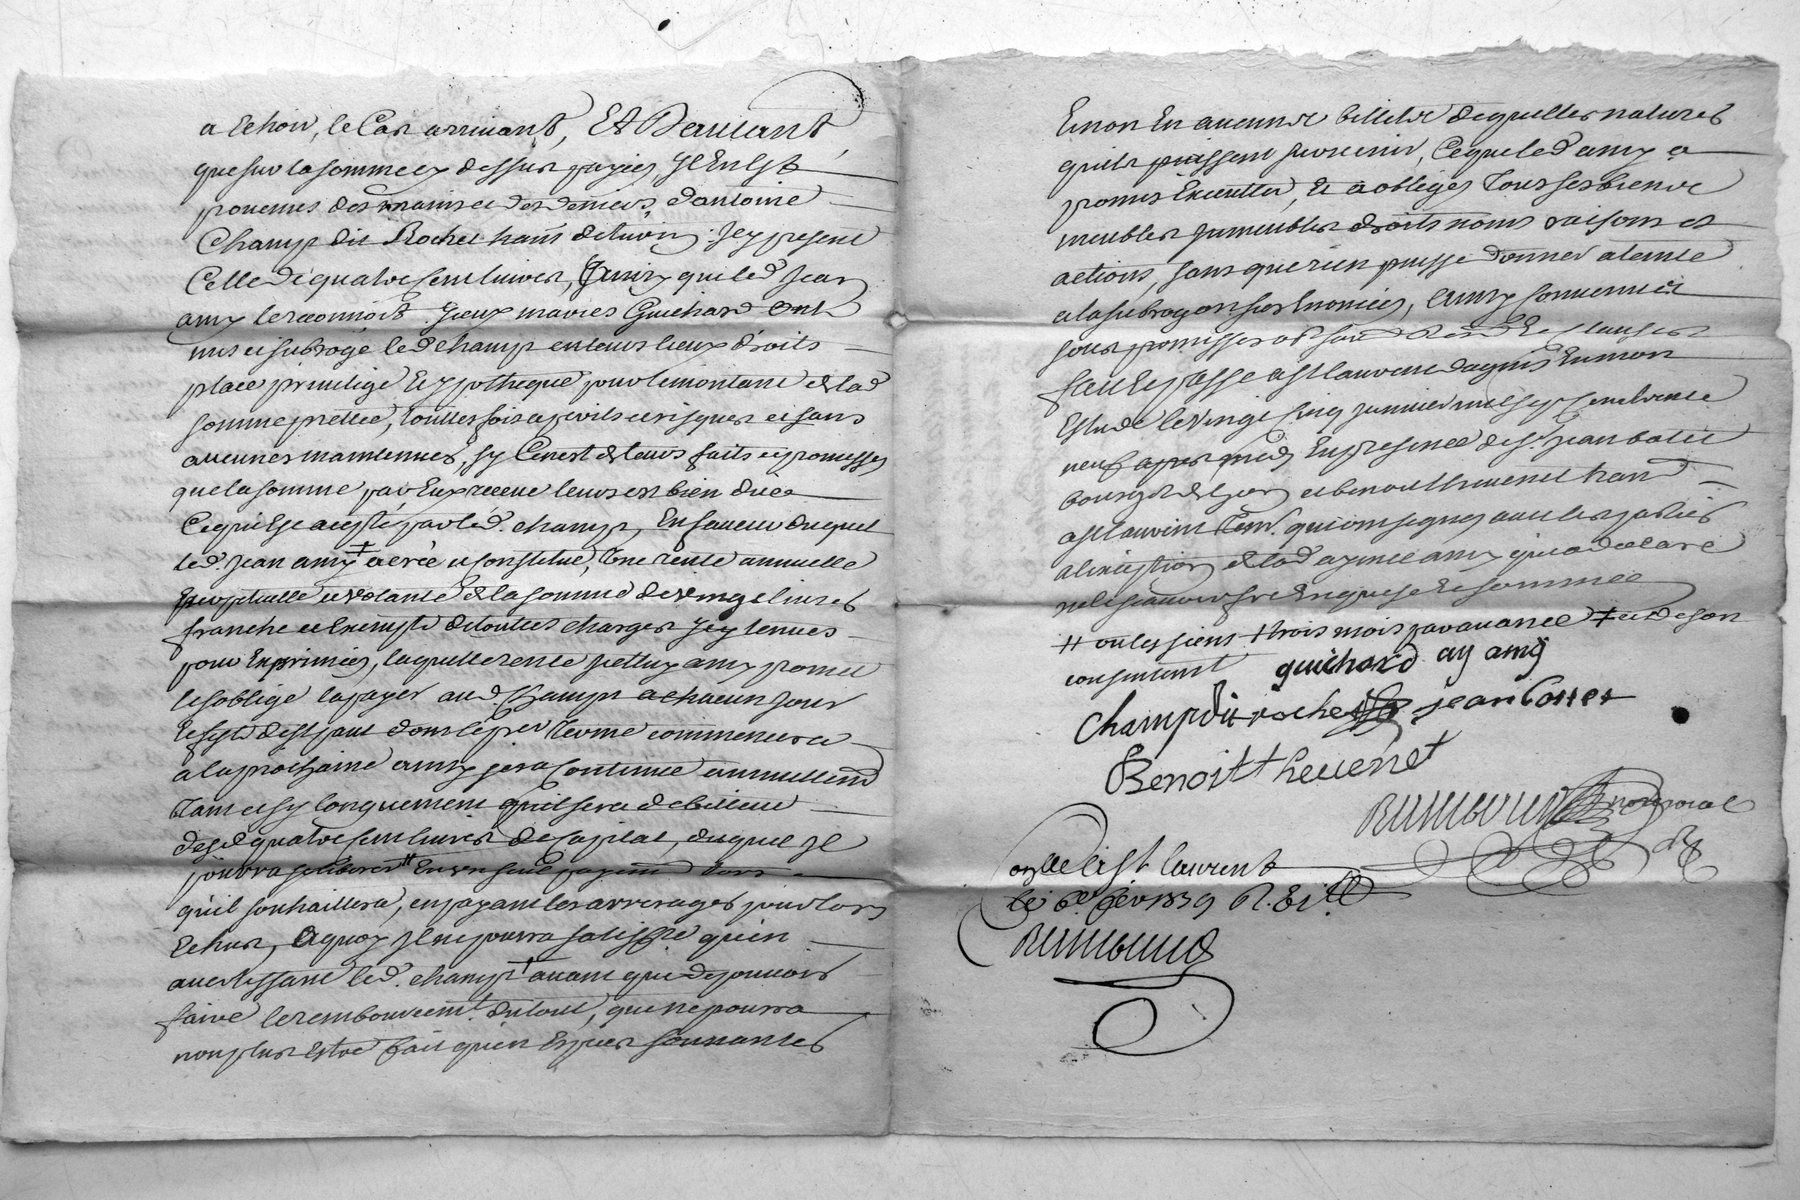 a Echoir, le Cas arrivant, Et Davant
que sur la somme cy dessus payée Il En Est
provenues des mains et des deniers d'antoine
Champ dit Rochet hant de Icy present
Celle de quatre cent livres, Ainsy que led Jean
amy le reconnoit. Iceux mariés Guichard Ont
mis et subrogé led champ en leurs lieux droits
place privilege Et ypotheque pour le montant de lad
somme prettée, touttes fois a perils et risques et sans
aucunes maintenues, sy Ce n'est de leurs faits et promesses
que la somme par Eux receue leurs est bien düe
Ce qui Est accepté par led. champ, En faveur duquel
led. Jean amy ‡ a crée et constitué, Une rente annuelle
perpetuelle et volante de la somme de vingt livres
franche et Exempte de touttes charges Icy tenues
pour Exprimées, laquelle rente Icelluy amy promet
Et s'oblige la payer aud. Champ a chacun Jour
Et feste de st jant dont le per terme commencera
a la prochaine ainsy sera Continué annuellemt
tant et sy longuement qu'il sera debiteur
desd quatre cent livres de Capital, duquel Il
pourra se liberer # En un seul payemt lors
qu'il souhaittera, en payant les arrerages pour lors
Echus, a quoy Il ne pourra satisfre qu'en
avertissant led. champ † avant que de pouvoir
faire le remboursemt du tout, qui ne pourra
non plus Estre fait qu'en Espèces sonnantes
Et non En aucunes billets de quelles natures
qu'ils puissent survenir, Ce que led amy a
promis Executter, Et a obligés Tous ses biens
meubles Immeubles droits noms raisons et
actions, sans que rien puisse donner atteinte
a la subrogaon sus Enoncée, Ainsy Convenu et
sous promisses obt soud Renon Et clauses
fait Et passé a st laurent dagnis En mon
Estude le vingt cinq Janvier mil sept cent trente
neuf apres midy En presence de sr Jean
bourgois de lyon et benoit thevenet hant
a st laurent tem. qui ont signés avec les parties
a l'exeption de lad aymée amy qui a declaré
ne le scavoir fre Enquise Et sommée
# ou les siens † trois mois par avance ‡ et de son
consentemt guichard ay amy
Champ dit rochet jean
Benoit thevenet
not royal
Con lle a st laurent
le 6e fevr 1739